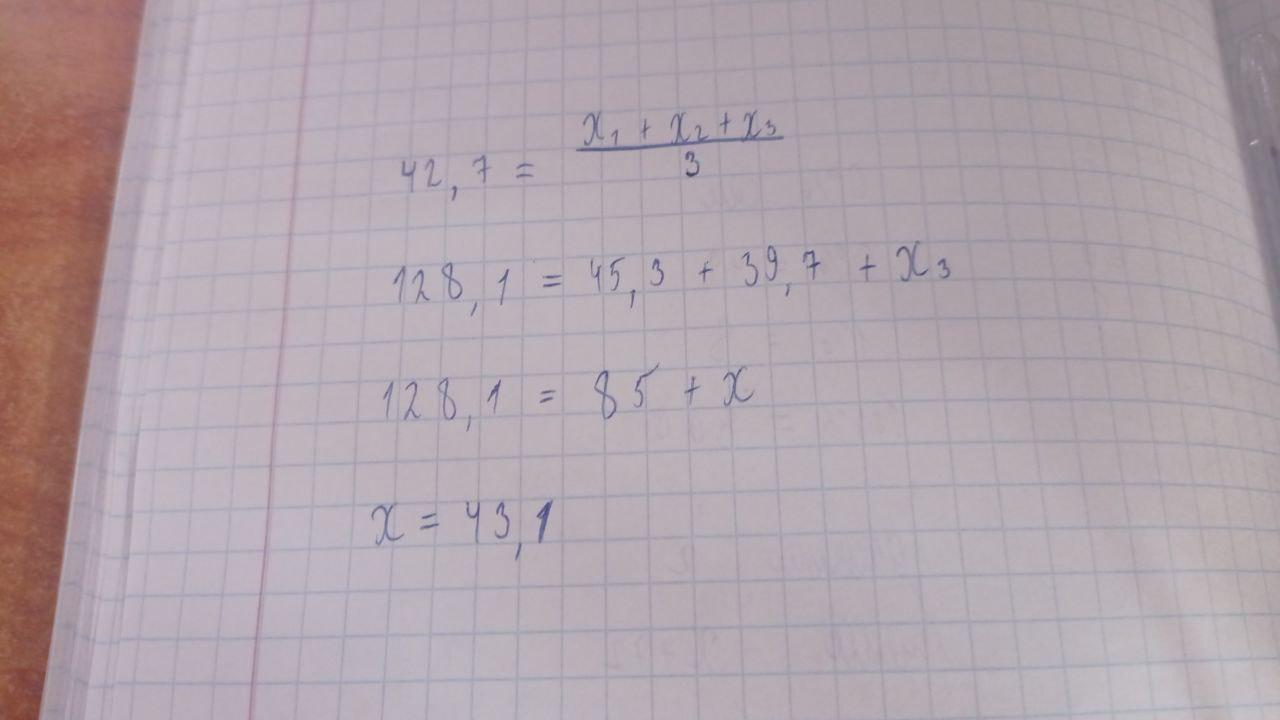 42,7 = (x₁ + x₂ + x₃)/3
128,1 = 45,3 + 39,7 + x₃
128,1 = 85 + x
x = 43,1